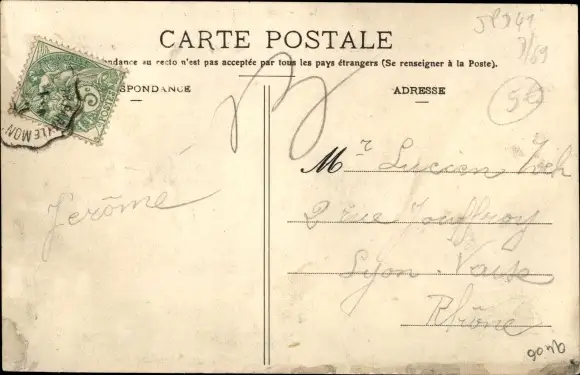 CARTE POSTALE
ndance au recto n'est pas acceptée par tous les pays étrangers (Se renseigner à la Poste).
SPONDANCE
ADRESSE
5€
Mr Lucien
Jerôme
2 rue Jouffroy
Lyon - Vaise
Rhône